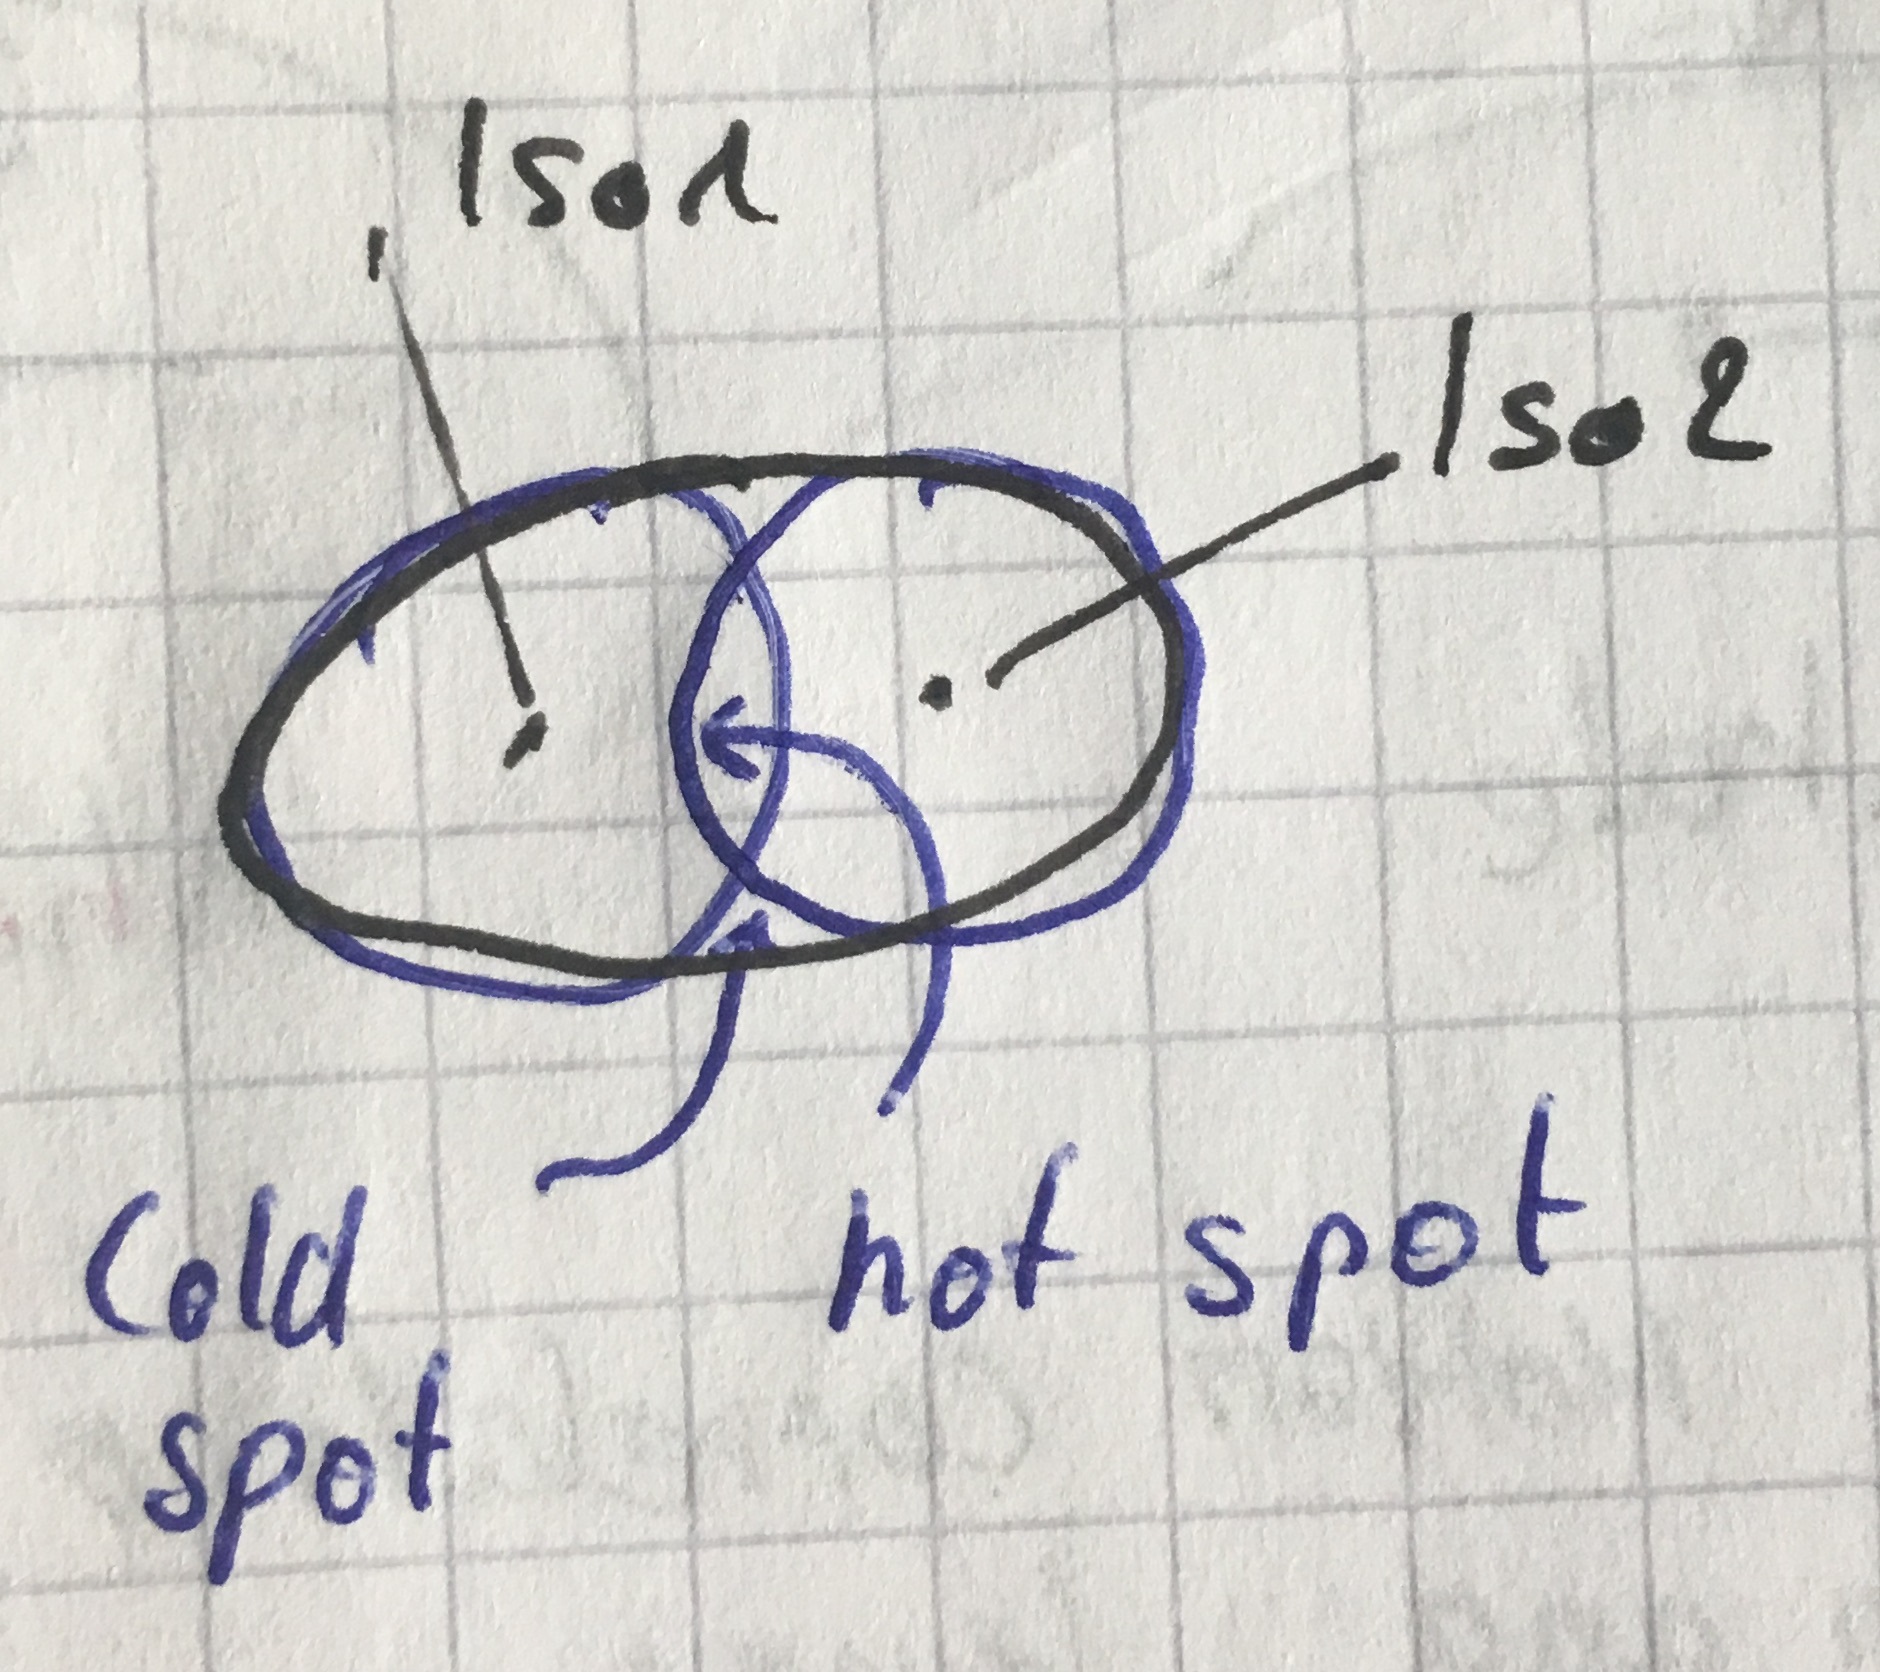 Iso 1
Iso 2
Cold
spot
hot spot